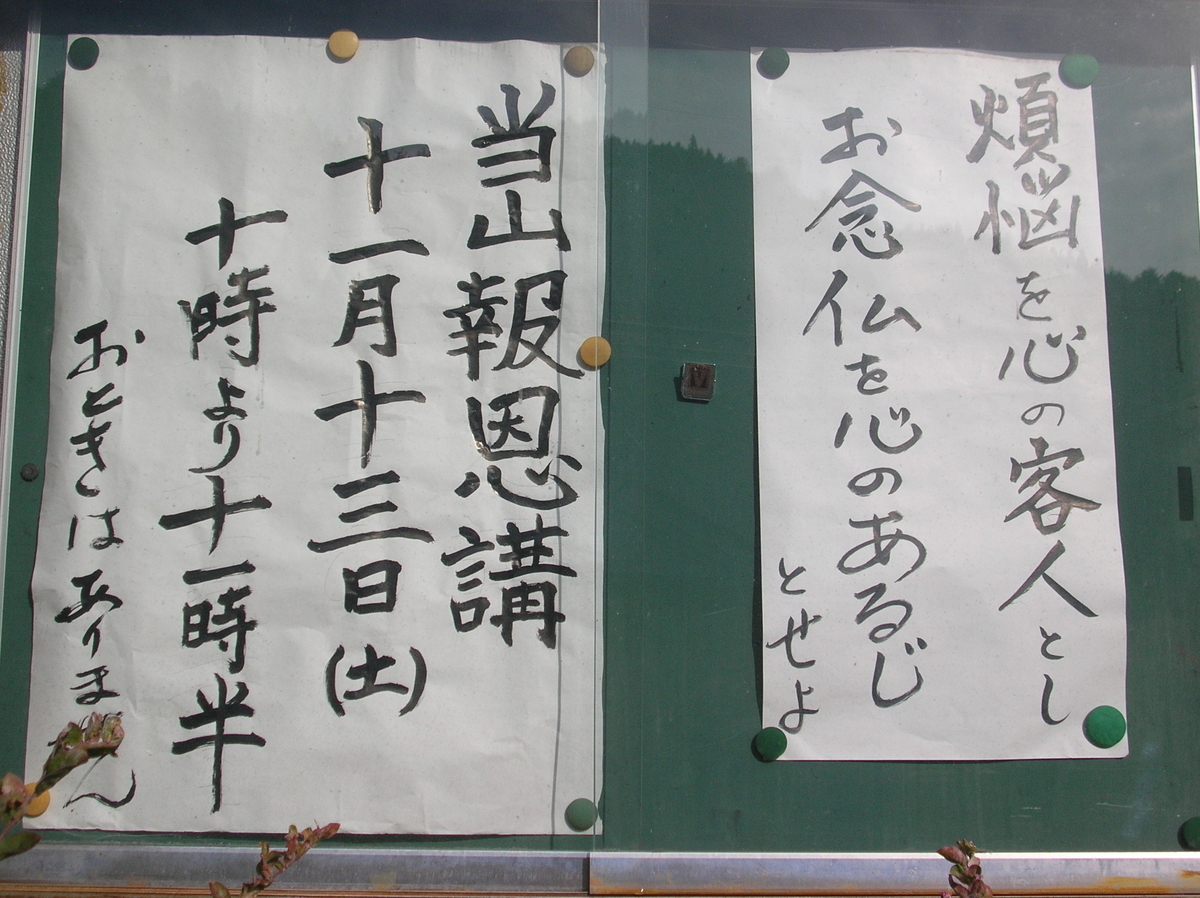 煩悩を心の客人とし
お念仏を心のあるじ
とせよ
当山報恩講
十一月十三日(土)
十時より十一時半
おときはありません